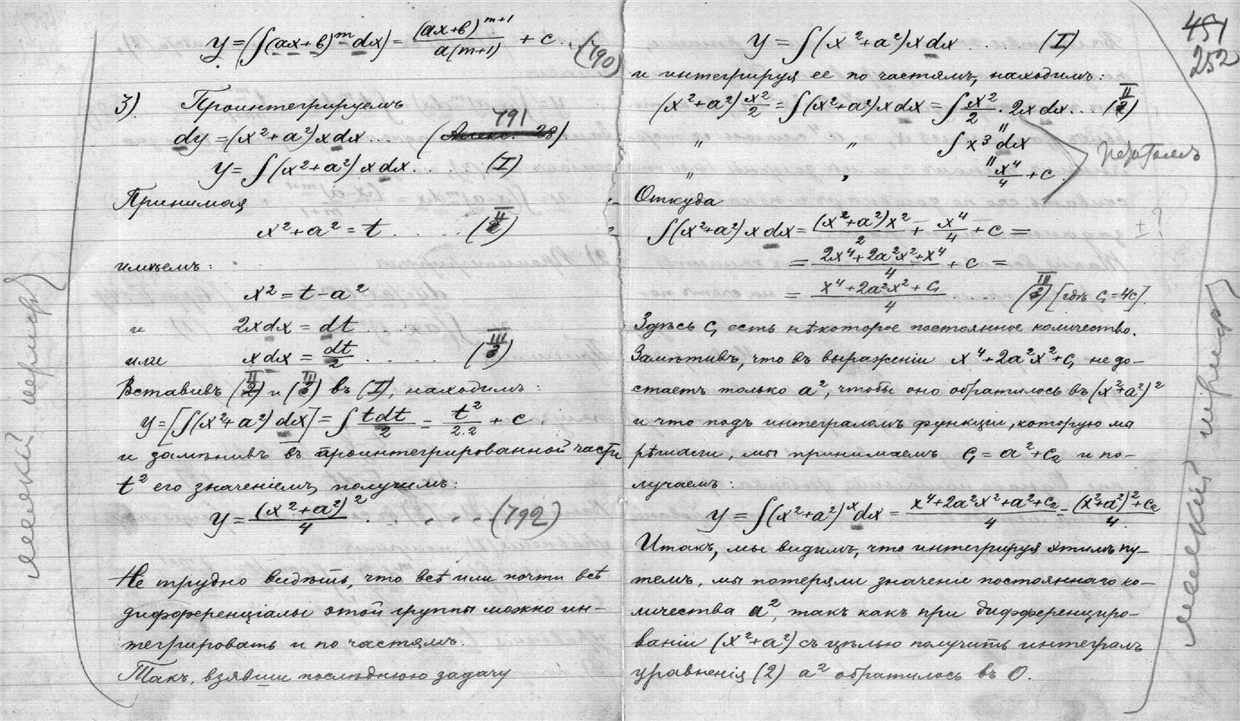 y = (∫(ax+b)^m dx) = (ax+b)^{m+1} / a(m+1) + c. (790)
3). Проинтегрируемъ
791
dy = (x²+a²)xdx... (28)
y = ∫(x²+a²)xdx... (I)
Принимая
x²+a² = t ..... (II)
имѣемъ:
x² = t-a²
и 2xdx = dt
или xdx = dt/2 ..... (III)
Вставивъ (II) и (III) въ (I), находимъ:
y = [∫(x²+a²)dx] = ∫ tdt/2 = t²/2.2 + c
и замѣнивъ въ проинтегрированной части
t² его значеніемъ, получимъ:
y = (x²+a²)²/4 ..... (792)
Не трудно видѣть, что всѣ или почти всѣ
дифференціалы этой группы можно ин-
тегрировать и по частямъ.
Такъ, взявши послѣднюю задачу
мелкій шрифт
451
252
y = ∫(x²+a²)xdx ... (I)
и интегрируя ее по частямъ, находимъ:
(x²+a²) x²/2 = ∫(x²+a²)xdx = ∫ x²/2 · 2xdx... (II)
" " ∫x³dx
" " x⁴/4 + c
Откуда
∫(x²+a²)xdx = (x²+a²)x²/2 + x⁴/4 + c =
± ?
= 2x⁴+2a²x²+x⁴/4 + c =
= x⁴+2a²x²+c₁/4 ..... (III) [гдѣ c₁=4c].
Здѣсь c₁ есть нѣкоторое постоянное количество.
Замѣтивъ, что въ выраженіи x⁴+2a²x²+c₁ не до-
стаетъ только a², чтобы оно обратилось въ (x²+a²)²
и что подъ интеграломъ функціи, которую мы
рѣшаемъ, мы принимаемъ c₁=a²+c₂ и по-
лучаемъ:
y = ∫(x²+a²)^x dx = x⁴+2a²x²+a²+c₂/4 = (x²+a²)²+c₂/4.
Итакъ, мы видимъ, что интегрируя этимъ пу-
темъ, мы потеряли значеніе постояннаго ко-
личества a², такъ какъ при дифференциро-
ваніи (x²+a²) съ цѣлью получить интегралъ
уравненія (2) a² обратилось въ 0.
мелкій шрифт